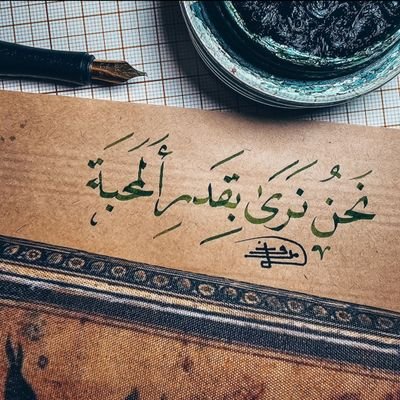 نَحنُ نَرَىٰ بِقَدَرِ أَلمَحَبَّة